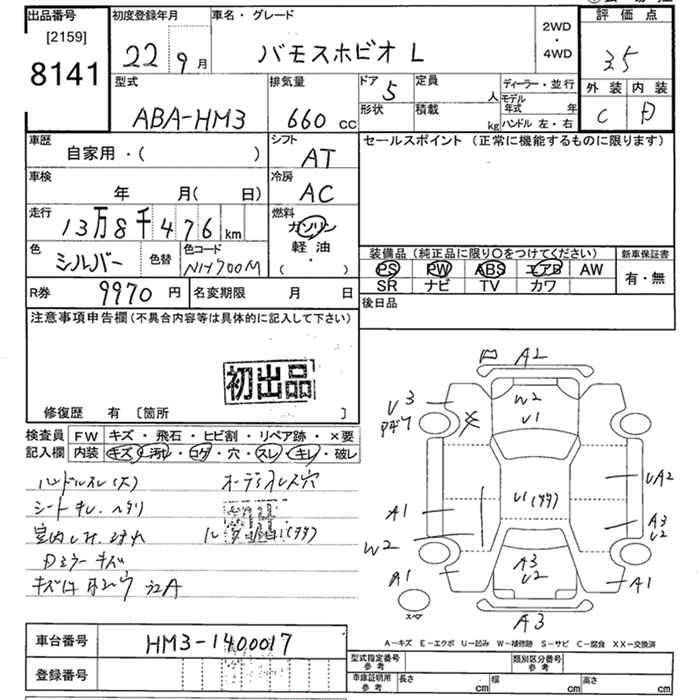 出品番号 初度登録年月 車名・グレード 評価点
[2159] 22年9月 バモスホビオ L 2WD・4WD 3.5
8141
外装 内装
C D
型式 排気量 ドア 5 定員 人 ディーラー・並行
ABA-HM3 660cc 形状 積載 kg モデル年式 年
ハンドル 左・右
車歴 シフト セールスポイント (正常に機能するものに限ります)
自家用・( ) AT
車検 冷房
年 月( 日) AC
走行 燃料
13万8千476km ガソリン
軽油
・( )
色 シルバー 色替 色コード NH700M
装備品 (純正品に限り○をつけてください) 新車保証書
PS PW ABS エアB AW 有・無
SR ナビ TV カワ
R券 9970円 名変期限 月 日 後日品
注意事項申告欄 (不具合内容等は具体的に記入して下さい)
初出品
修復歴 有 [箇所 ]
検査員 FW キズ・飛石・ヒビ割・リペア跡・×要
記入欄 内装 キズ・汚レ・コゲ・穴・スレ・キレ・破レ
ハンドルスレ(大) オーディオレス穴
Dミラーキズ
A2
U3 W2
U1
U1
UA2
A1
A3
U2
W2
A3
U2
A1 A1
スペア A3
A-キズ E-エクボ U-凹み W-補修跡 S-サビ C-腐食 XX-交換済
車台番号 HM3-1400017
型式指定番号 参考 類別区分番号 参考
登録番号
車庫証明用 参考 長さ cm 幅 cm 高さ cm